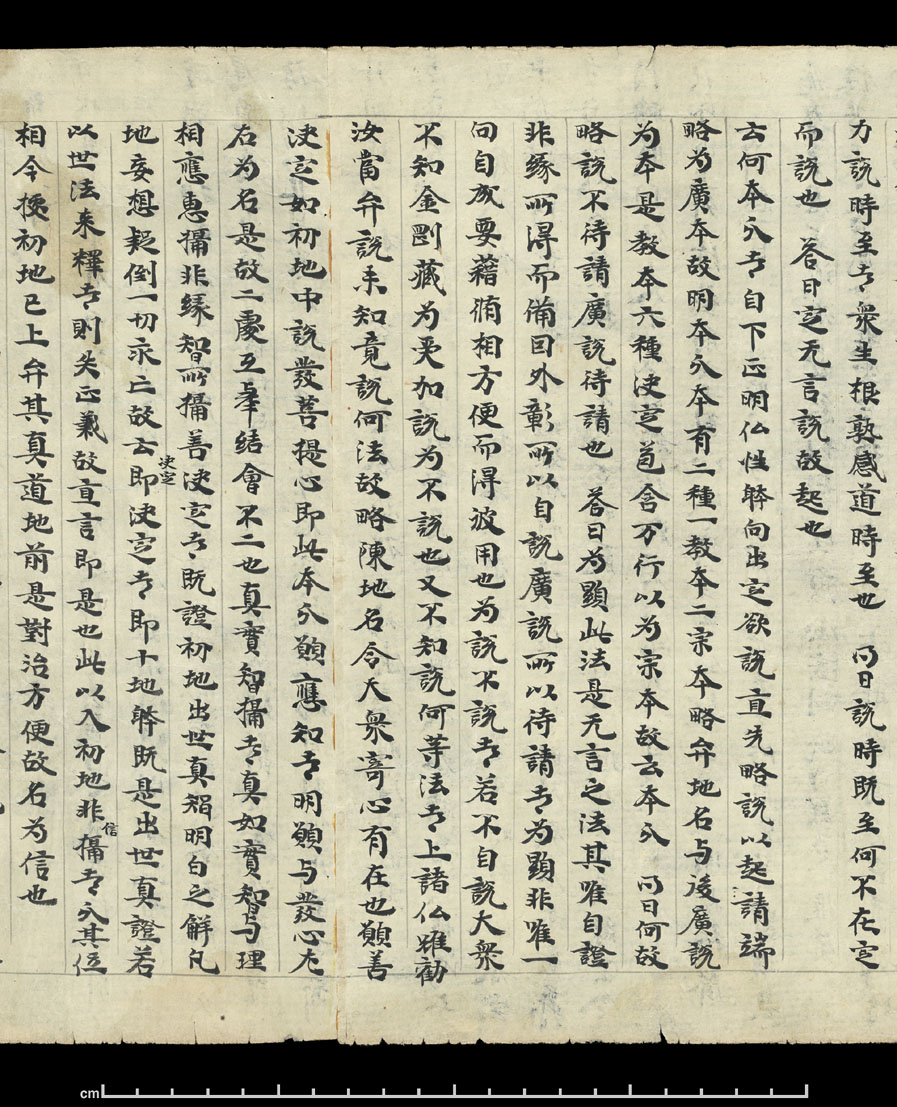 力說時至者衆生根熟感道時至也 问曰說時既至何不在定
而說也 答曰定无言說故起也
云何本分者自下正明仏性躰向出定欲說直先略說以起請端
略為廣本故明本分本有二種一教本二宗本略弁地名与後廣說
為本是教本六種决定苞含万行以為宗本故云本分 问曰何故
略說不待請廣說待請也 答曰為顯此法是无言之法其唯自證
非緣所得而俻因外彰所以自說廣說所以待請者為顯非唯一
向自成要藉脩相方便而得波用也為說不說者若不自說大衆
不知金剛藏為更加說為不說也又不知說何等法者上諸仏雖勸
汝當弁說未知竟說何法故略陳地名令大衆寄心有在也願善
决定如初地中說發菩提心即此本分願應知者明願与發心左
右為名是故二處互舉結會不二也真實智攝者真如實智与理
相應惠攝非緣智所攝善决定者既證初地出世真智明白之解凡
地妄想疑倒一切永亡故云即决定决定者即十地躰既是出世真證若
以世法来釋者則失正義故直言即是也此以入初地非信攝者分其位
相令挍初地已上弁其真道地前是對治方便故名為信也